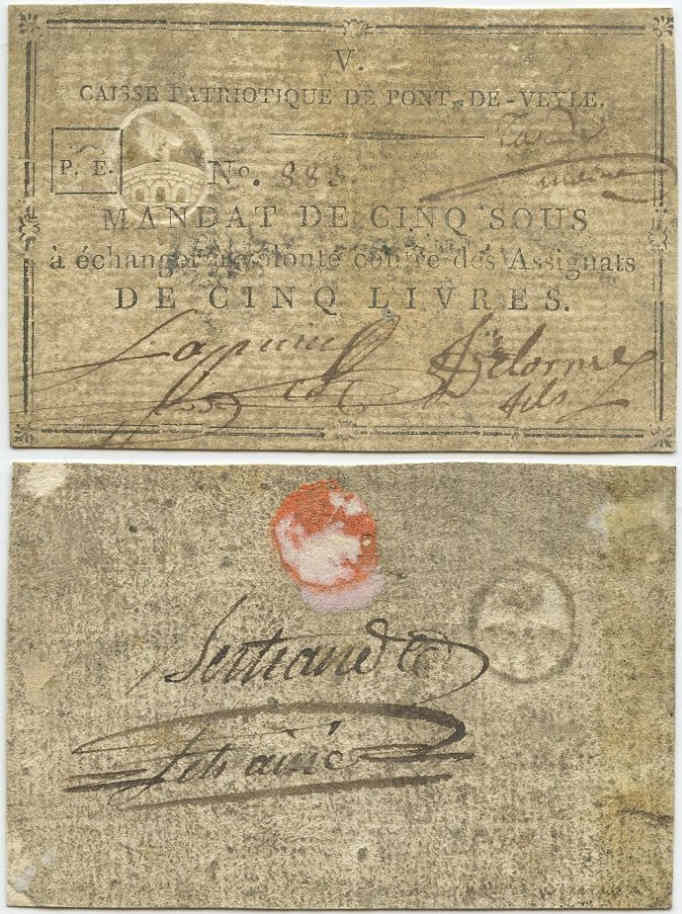 V.
CAISSE PATRIOTIQUE DE PONT-DE-VEYLE.
P. E.
No. 883.
maire
MANDAT DE CINQ SOUS
à échanger à volonté contre des Assignats
DE CINQ LIVRES.
Delorme
fils
Bertrand
fils ainé